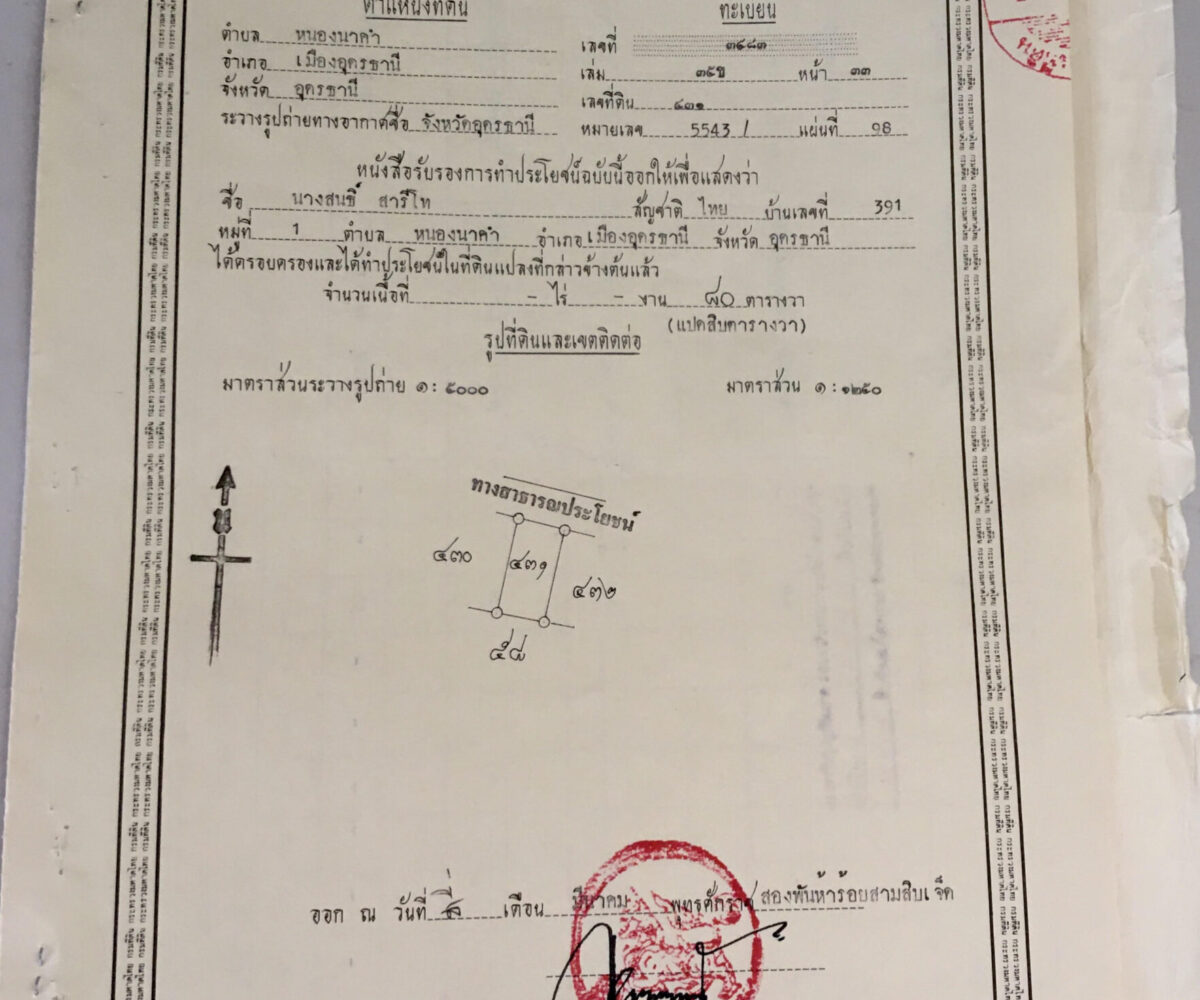 ตำแหน่งที่ดิน
ทะเบียน
ตำบล หนองนาคำ
เลขที่ ๓๔๘๓
อำเภอ เมืองอุดรธานี
เล่ม ๓๕ข หน้า ๓๓
จังหวัด อุดรธานี
เลขที่ดิน ๔๓๑
ระวางรูปถ่ายทางอากาศชื่อ จังหวัดอุดรธานี
หมายเลข 5543 I แผ่นที่ 98
หนังสือรับรองการทำประโยชน์ฉบับนี้ออกให้เพื่อแสดงว่า
ชื่อ นางสนธิ์ สารีโท สัญชาติ ไทย บ้านเลขที่ 391
หมู่ที่ 1 ตำบล หนองนาคำ อำเภอ เมืองอุดรธานี จังหวัด อุดรธานี
ได้ครอบครองและได้ทำประโยชน์ในที่ดินแปลงที่กล่าวข้างต้นแล้ว
จำนวนเนื้อที่ - ไร่ - งาน ๘๐ ตารางวา
(แปดสิบตารางวา)
รูปที่ดินและเขตติดต่อ
มาตราส่วนระวางรูปถ่าย ๑: ๕๐๐๐
มาตราส่วน ๑:๑๒๕๐
ทางสาธารณประโยชน์
๔๓๐
๔๓๑
๔๓๒
๕๘
ออก ณ วันที่ เดือน มีนาคม พุทธศักราช สองพันห้าร้อยสามสิบเจ็ด